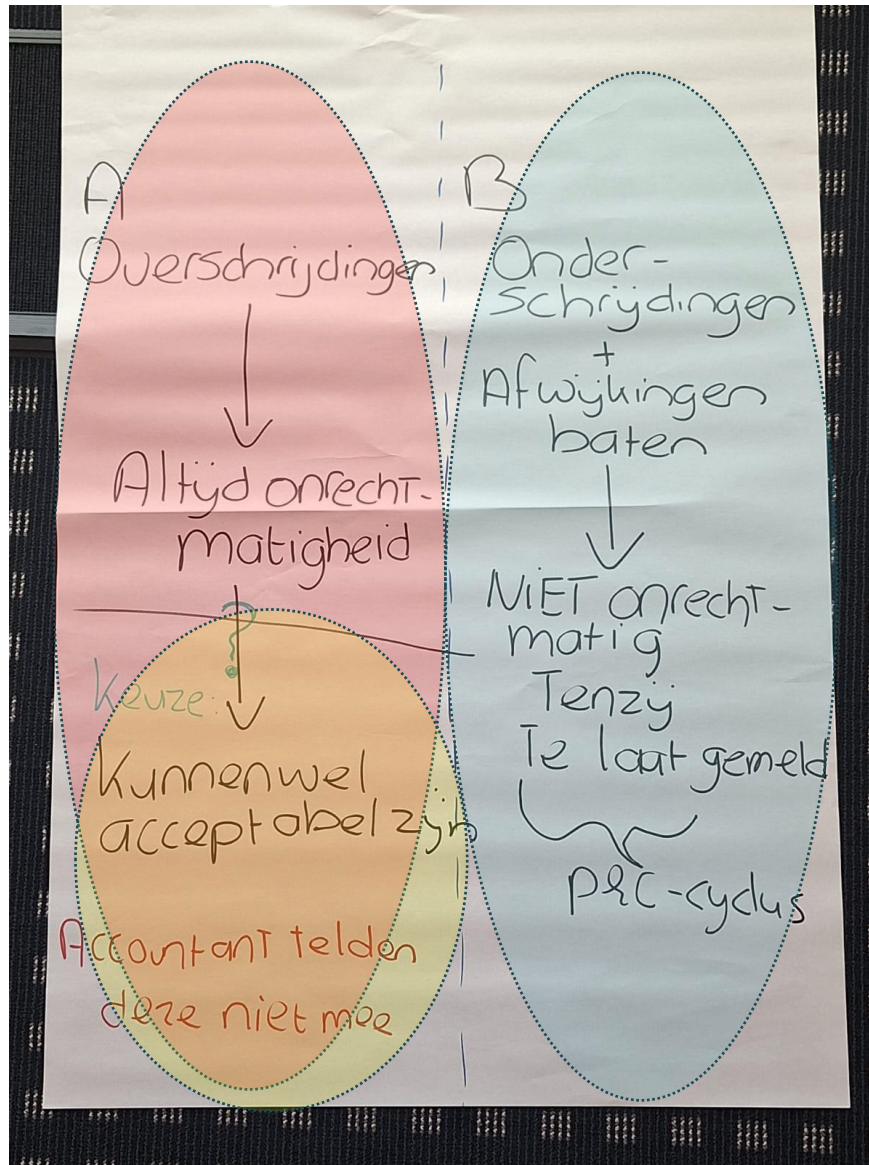 A
Overschrijdingen
Altijd onrecht-
matigheid
?
Keuze:
Kunnen wel
acceptabel zijn
Accountant telden
deze niet mee
B
Onder-
schrijdingen
+
Afwijkingen
baten
NIET onrecht-
matig
Tenzij
Te laat gemeld
P&C-cyclus